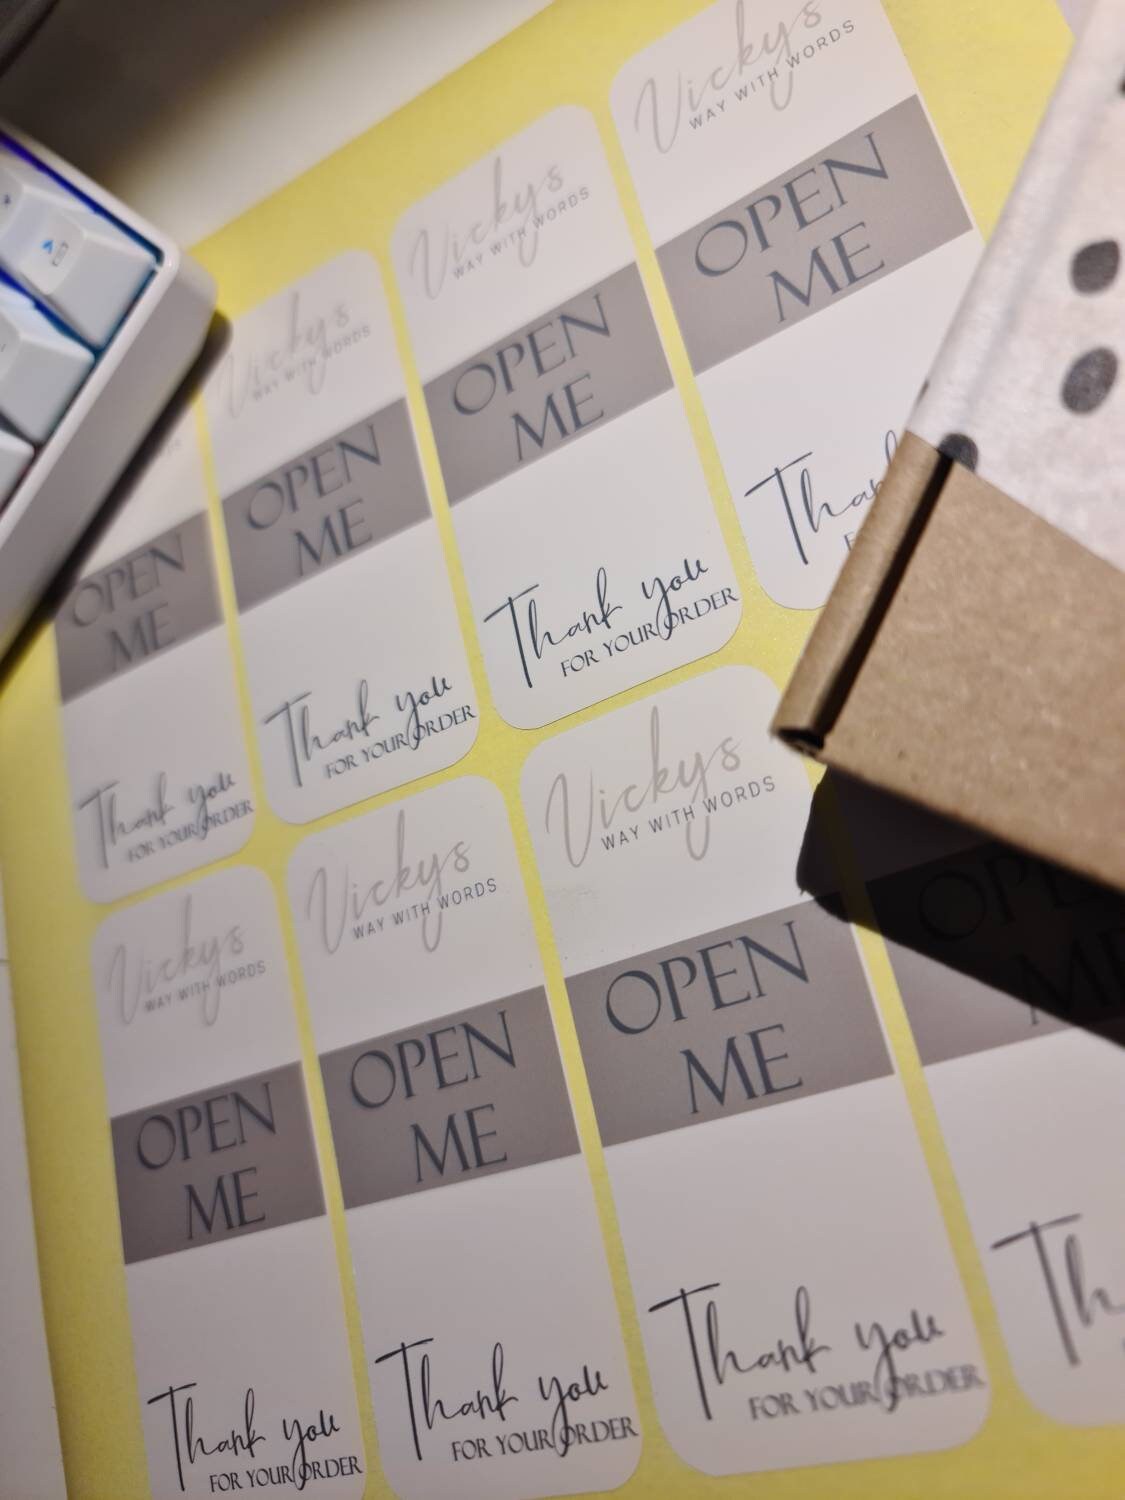 Vickys
WAY WITH WORDS
OPEN
ME
Thank
Vickys
WAY WITH WORDS
OPEN
ME
Thank you
FOR YOUR ORDER
Vickys
WAY WITH WORDS
OPEN
ME
Thank you
FOR YOUR ORDER
OPEN
ME
Thank you
FOR YOUR ORDER
Vickys
WAY WITH WORDS
OPEN
ME
Thank you
FOR YOUR ORDER
Vickys
WAY WITH WORDS
OPEN
ME
Thank you
FOR YOUR ORDER
Vickys
WAY WITH WORDS
OPEN
ME
Thank you
FOR YOUR ORDER
OPEN
ME
Th